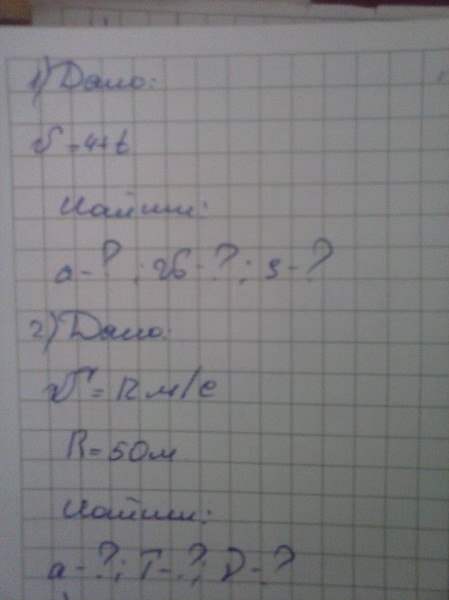 1) Дано:
υ = 4+t
Найти:
a - ? ; υ₀ - ? ; s - ?
2) Дано:
υ = 12 м/с
R = 50м
Найти:
a - ? ; T - ? ; ν - ?